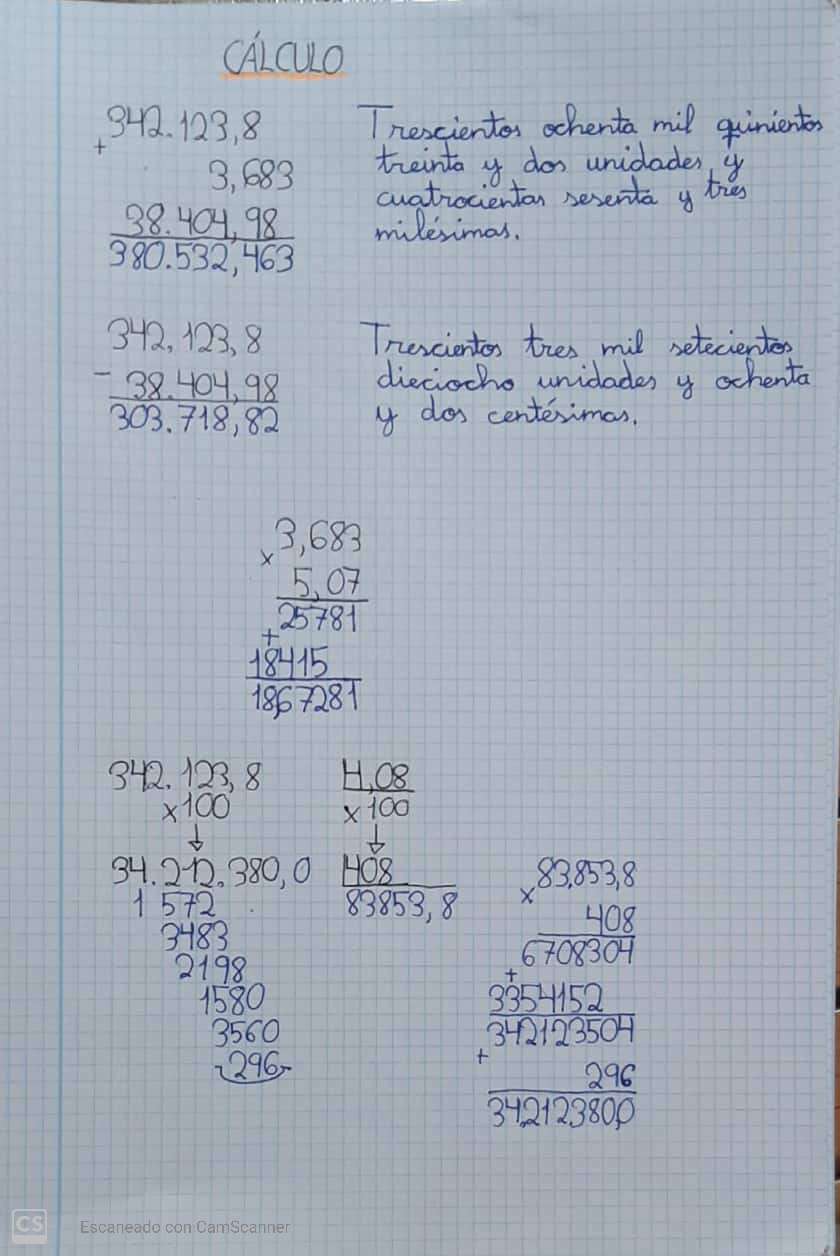 CÁLCULO
342.123,8
+
3,683
38.404,98
380.532,463
Trescientos ochenta mil quinientos
treinta y dos unidades y
cuatrocientas sesenta y tres
milésimas.
342.123,8
- 38.404,98
303.718,82
Trescientos tres mil setecientos
dieciocho unidades y ochenta
y dos centésimas.
3,683
x
5,07
25781
+
18415
18,67281
342.123,8 4,08
x100 x100
34.212.380,0 408
1 572 83853,8
3483
2198
1580
3560
296
83.853,8
x
408
6708304
+
3354152
342123504
+
296
34212380,0
CS Escaneado con CamScanner